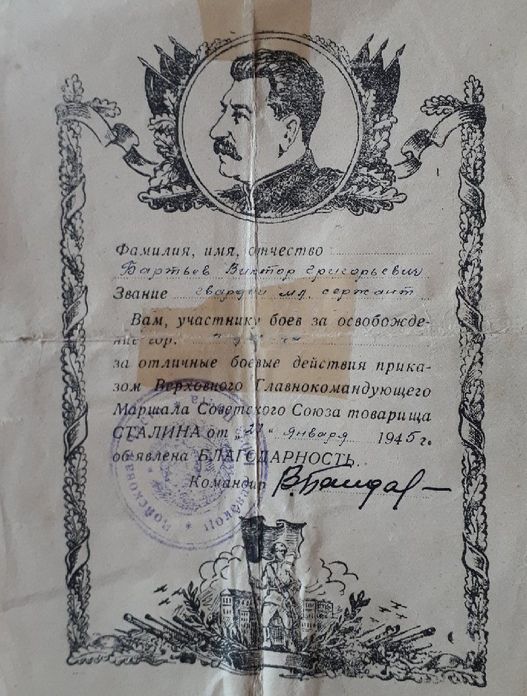 Фамилия, имя, отчество
Бартьев Виктор Григорьевич
Звание гвардеи мл. сержант
Вам, участнику боев за освобожде-
ние гор.
за отличные боевые действия прика-
зом Верховного Главнокомандующего
Маршала Советского Союза товарища
СТАЛИНА от „27“ января 1945 г.
объявлена БЛАГОДАРНОСТЬ.
Командир
Полевая